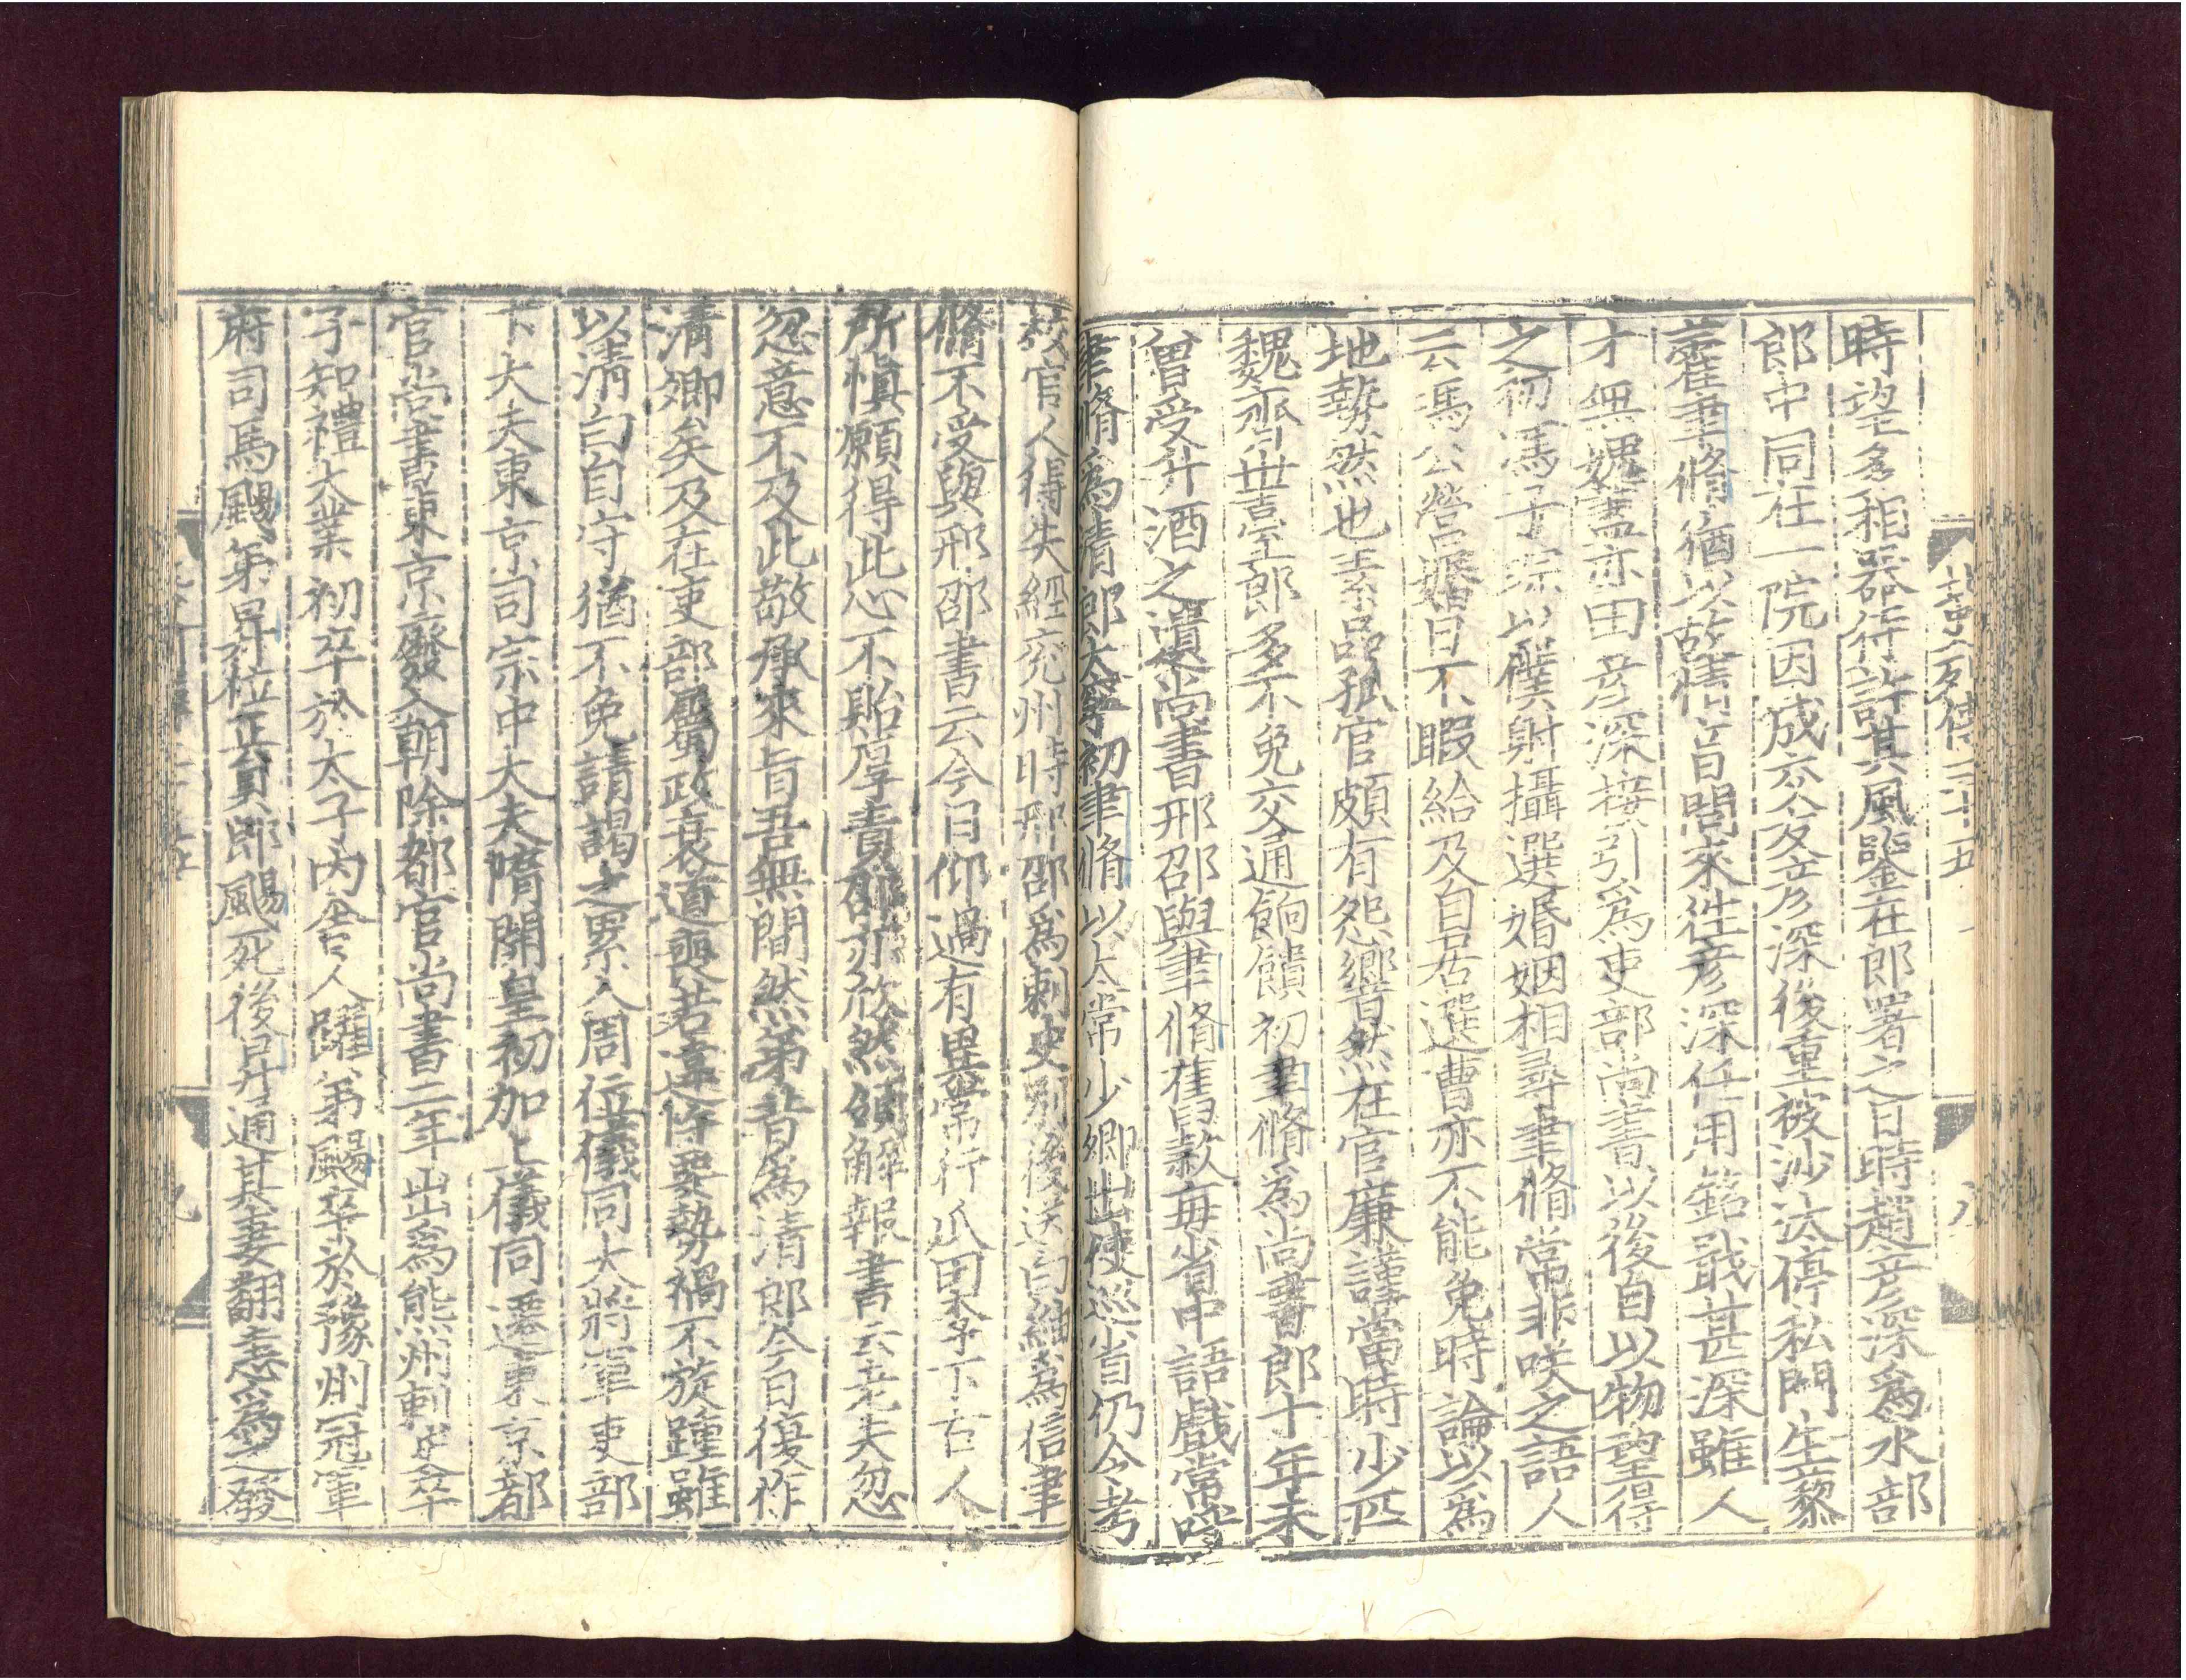 北史列傳三十五
八
時望多相器待許其風鑒在郎署之日時趙彦深爲水部
郎中同在一院因成交友彦深後重被沙汰停私門生藜
藿聿脩猶以故情省問來徃彦深任用銘戢甚深雖人
才無媿蓋亦田彦深接引爲吏部尚書以後自以物望得
之初馮子琮以僕射攝選婚姻相尋聿脩常非咲之語人
云馮公營婚日不暇給及自居選曹亦不能免時論以爲
地勢然也素品孤官頗有怨響然在官廉謹當時少匹
魏齊世臺郎多不免交通餉饋初聿脩爲尚書郎十年未
曾受升酒之遺尚書邢邵與聿脩舊款每省中語戲常呼
聿脩爲清郎大寧初聿脩以太常少卿出使巡省仍令考
校官人得失經兖州時邢邵爲刺史別後送白紬爲信聿
脩不受與邢邵書云今日仰過有異常行瓜田李下古人
所慎願得此心不貽厚責邵亦欣然領解報書云老夫忽
忽意不及此敬承來旨吾無間然弟昔爲清郎今日復作
清卿矣及在吏部屬政衰道喪若違忤要勢禍不旋踵雖
以清白自守猶不免請謁之累入周位儀同大將軍吏部
下大夫東京司宗中大夫隋開皇初加上儀同遷東京都
官尚書東京廢入朝除都官尚書二年出爲熊州刺史卒
子知禮大業初卒於太子内舍人躍弟颺卒於豫州冠軍
府司馬颺弟昇位正員郎颺死後昇通其妻翻恚爲之發
九